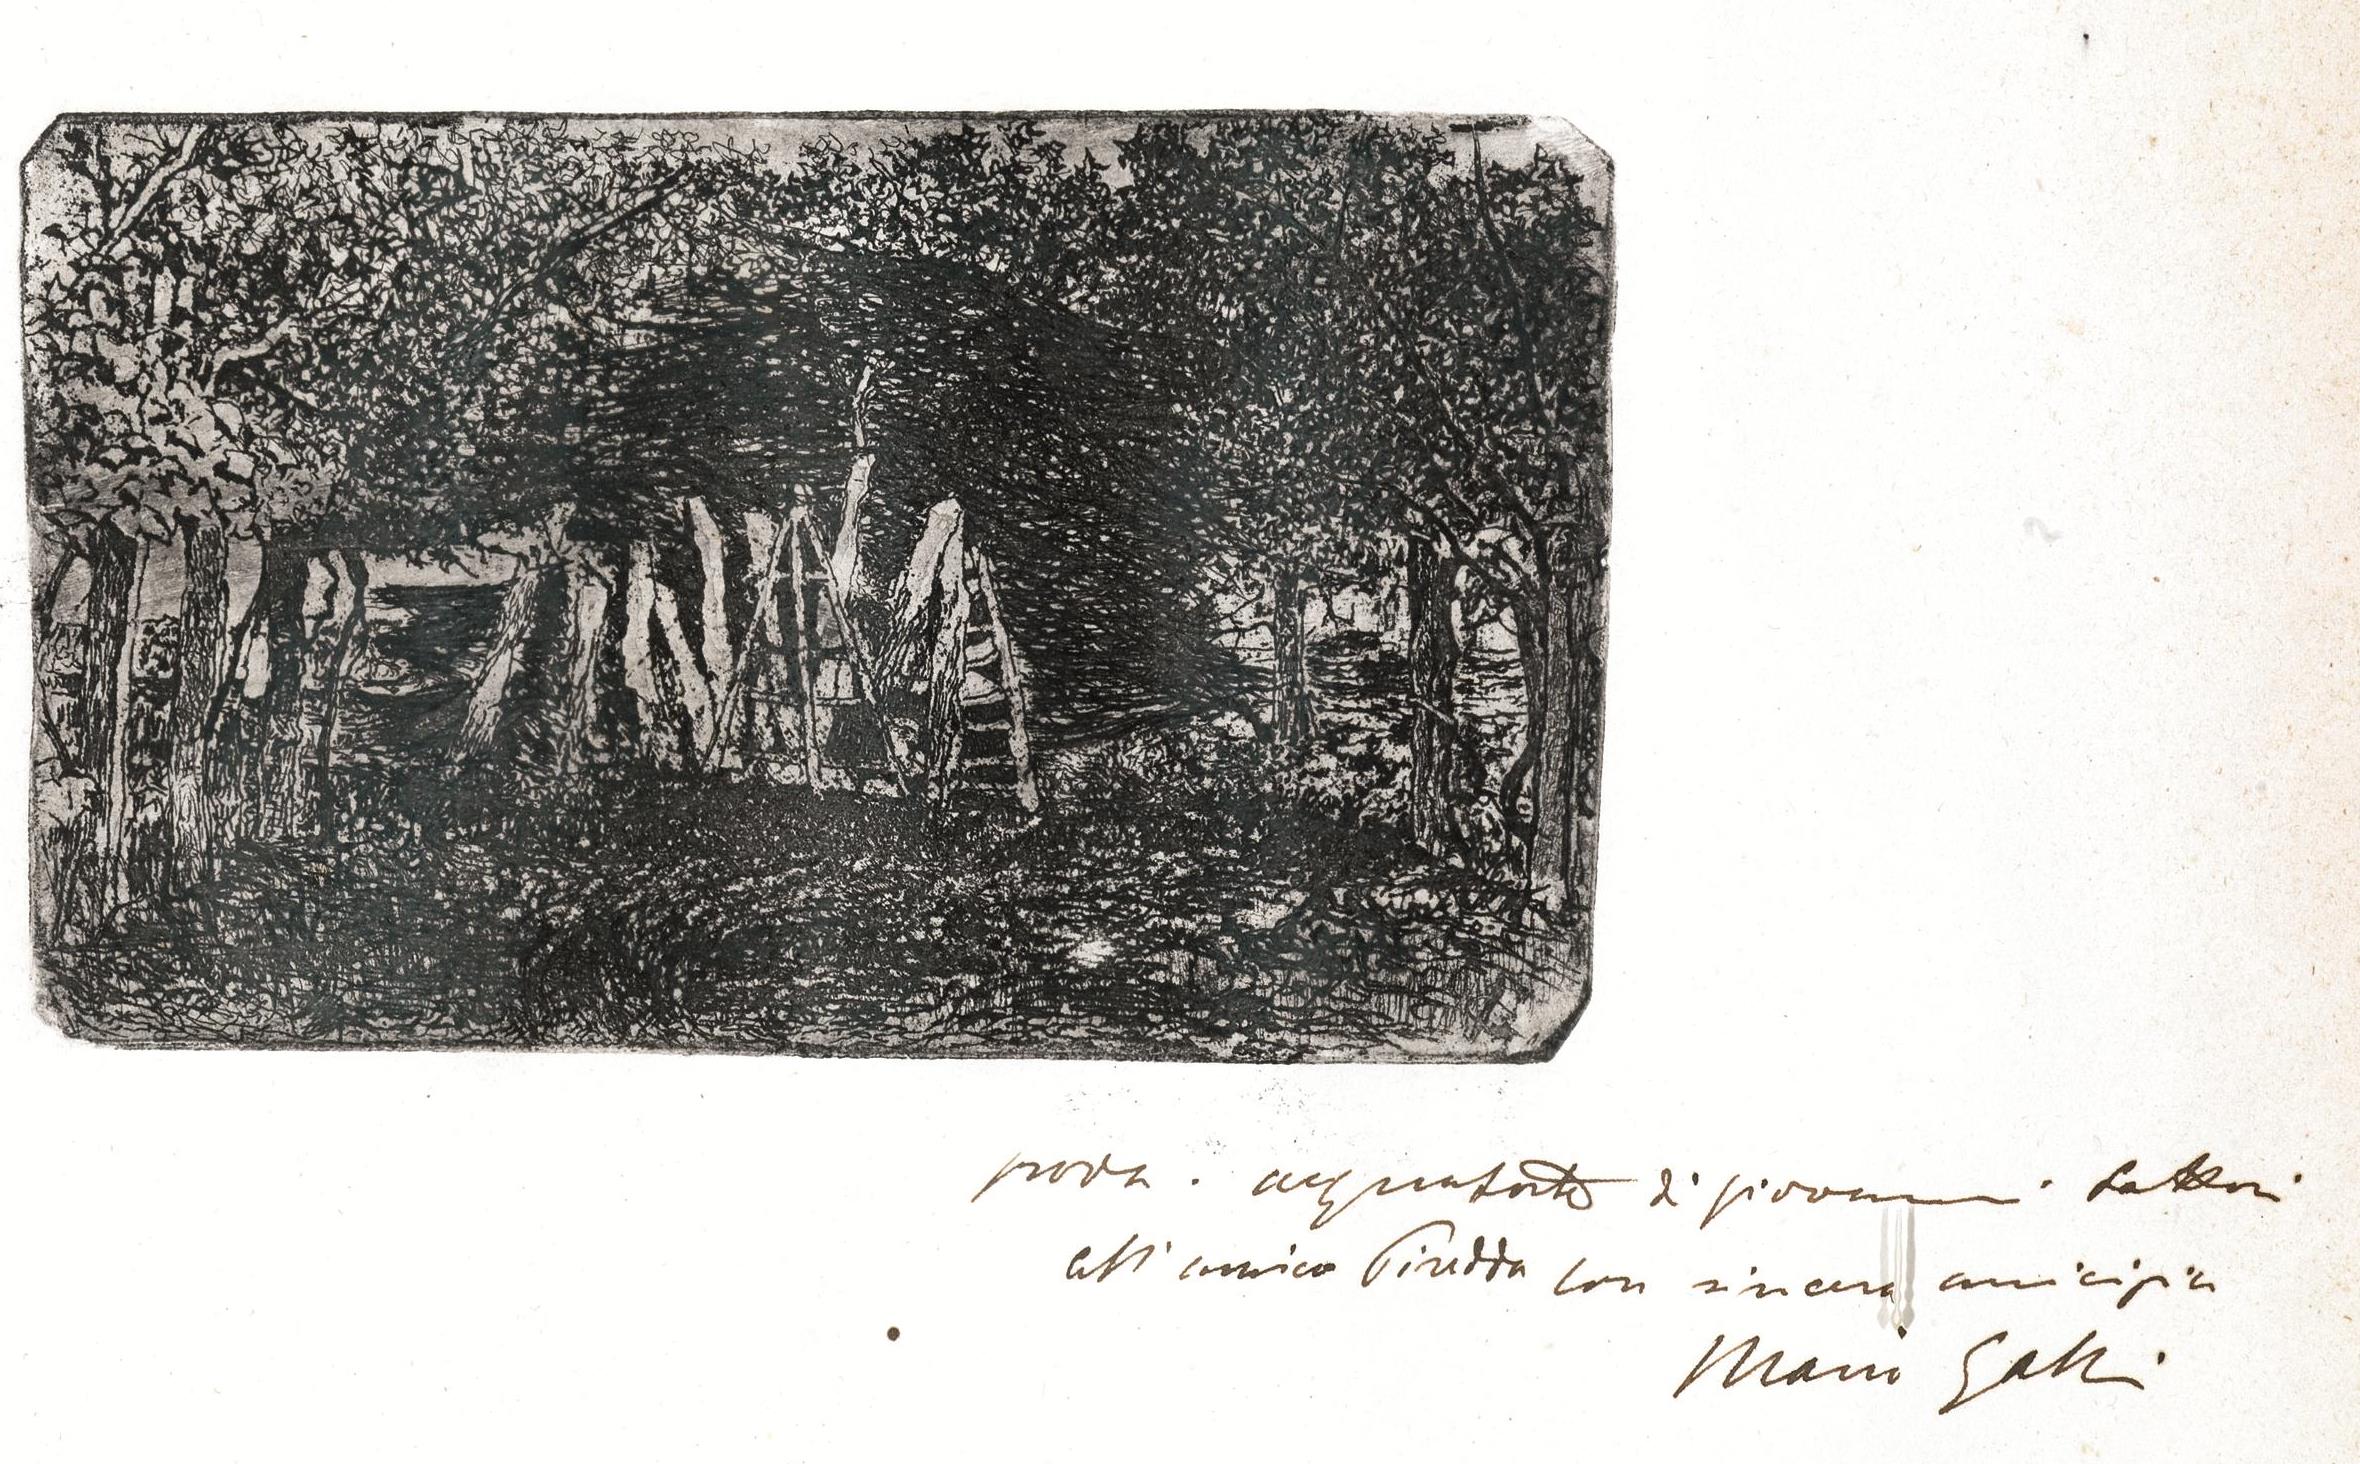 prova. acquaforte di giovanni Fattori
all'amico Piredda con sincera amicizia
Mario Galli.